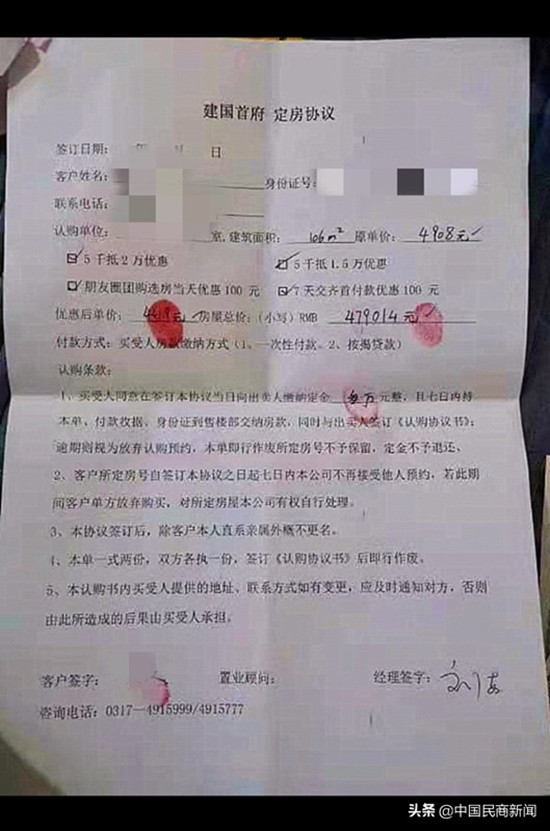 建国首府 定房协议
签订日期: 年 月 日
客户姓名: 身份证号:
联系电话:
认购单位: 室,建筑面积: 106m² 原单价: 4908元
☑5千抵2万优惠 ☑5千抵1.5万优惠
☑朋友圈团购选房当天优惠100元 ☑7天交齐首付款优惠100元
优惠后单价: 房屋总价:(小写)RMB 479014元
付款方式: 买受人房款缴纳方式(1、一次性付款、2、按揭贷款)
认购条款:
1、买受人同意在签订本协议当日向出卖人缴纳定金 元整,且七日内持
本单、付款收据、身份证到售楼部交纳房款,同时与出卖人签订《认购协议书》;
逾期则视为放弃认购预约,本单即行作废所定房号不予保留,定金不予退还、
2、客户所定房号自签订本协议之日起七日内本公司不再接受他人预约,若此期
间客户单方放弃购买,对所定房屋本公司有权自行处理。
3、本协议签订后,除客户本人直系亲属外概不更名。
4、本单一式两份,双方各执一份,签订《认购协议书》后即行作废。
5、本认购书内买受人提供的地址、联系方式如有变更,应及时通知对方,否则
由此所造成的后果由买受人承担。
客户签字: 置业顾问: 经理签字:
咨询电话:0317—4915999/4915777
头条 @中国民商新闻